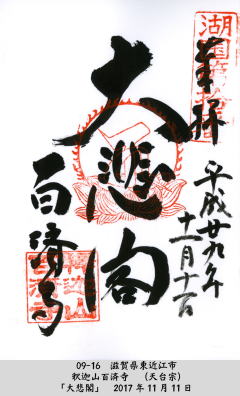 奉拝
平成廿九年
十一月十一日
大悲閣
百済寺
09-16 滋賀県東近江市
釈迦山百済寺 (天台宗)
「大悲閣」 2017年11月11日